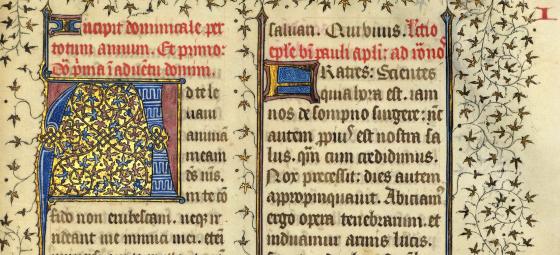 Incipit dominicale per
totum annum. Et primo:
Dn̄ica p̄ma ī aduētu domini.
Ad te le
uaui
animā
meam
ds̄ ms̄.
in te cō
fido non erubescam. neqꝫ ir
rideant me inimici mei. eteī
saluan. Qui viuis. Lectio
ep̄le bī pauli apl̄i: ad roṁo
FRatres: Scientes
quia hora est. iam
nos de sompno surgere: nc̄
autem ꝓpius est nostra sa
lus. qm̄ cum credidimus.
Nox precessit: dies autem
appropinquauit. Abiciamꝰ
ergo opera tenebrarum. et
induamur armis lucis.
I